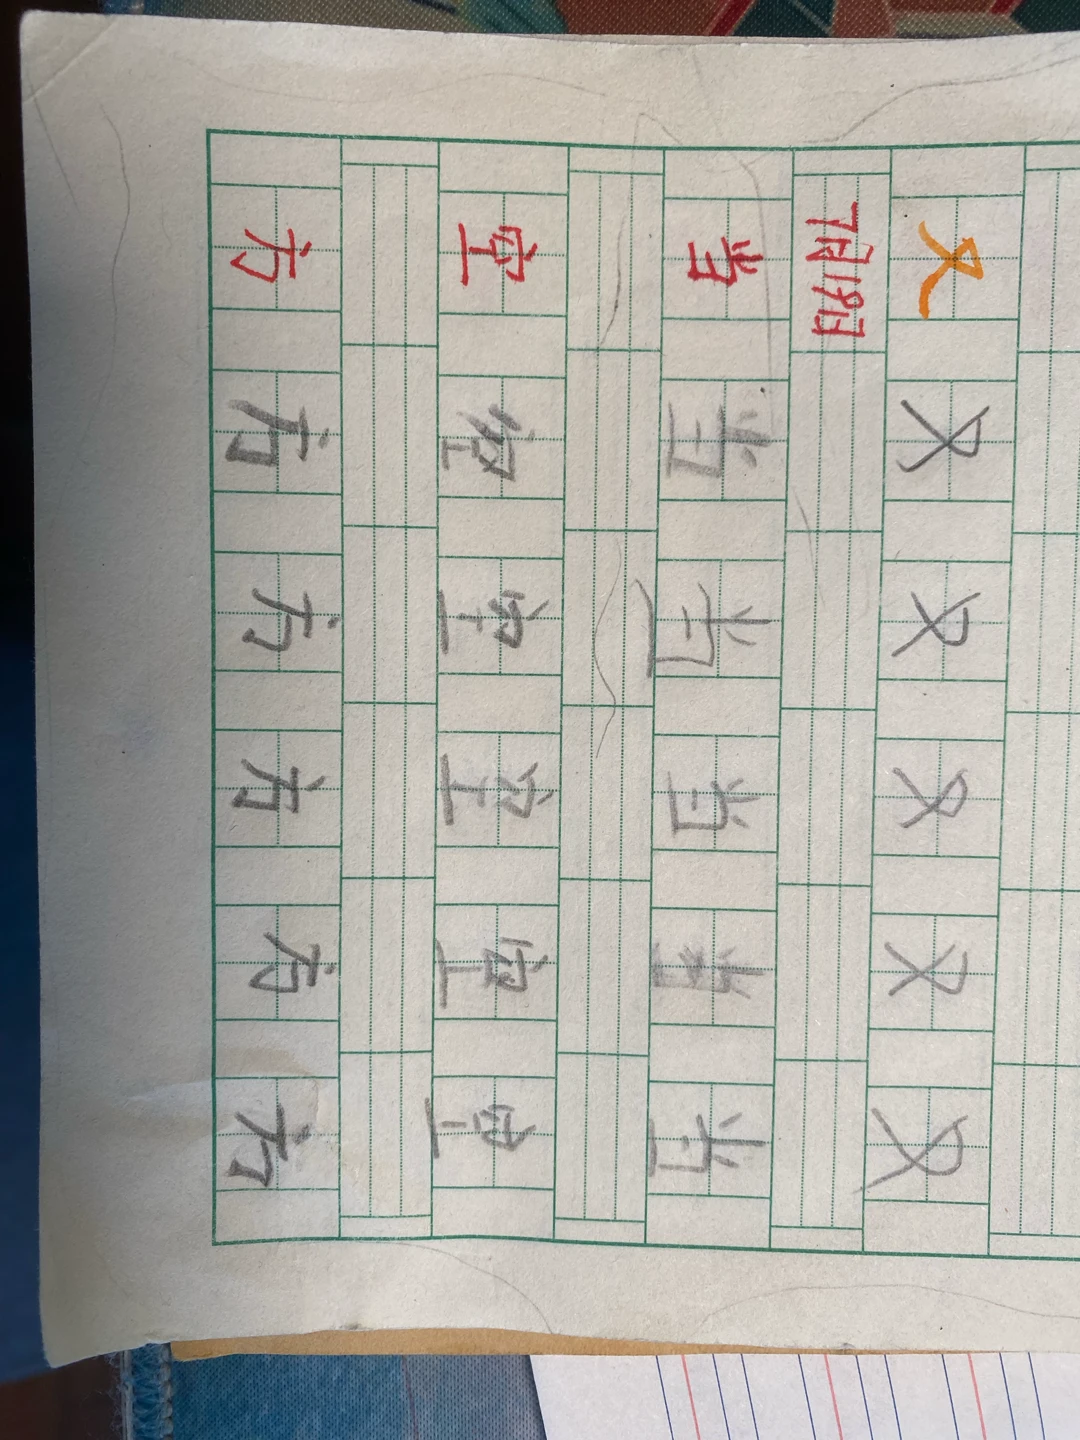 又 又 又 又 又 又
7月19日
当 当 当 当 当 当
空 空 空 空 空 空
方 方 方 方 方 方